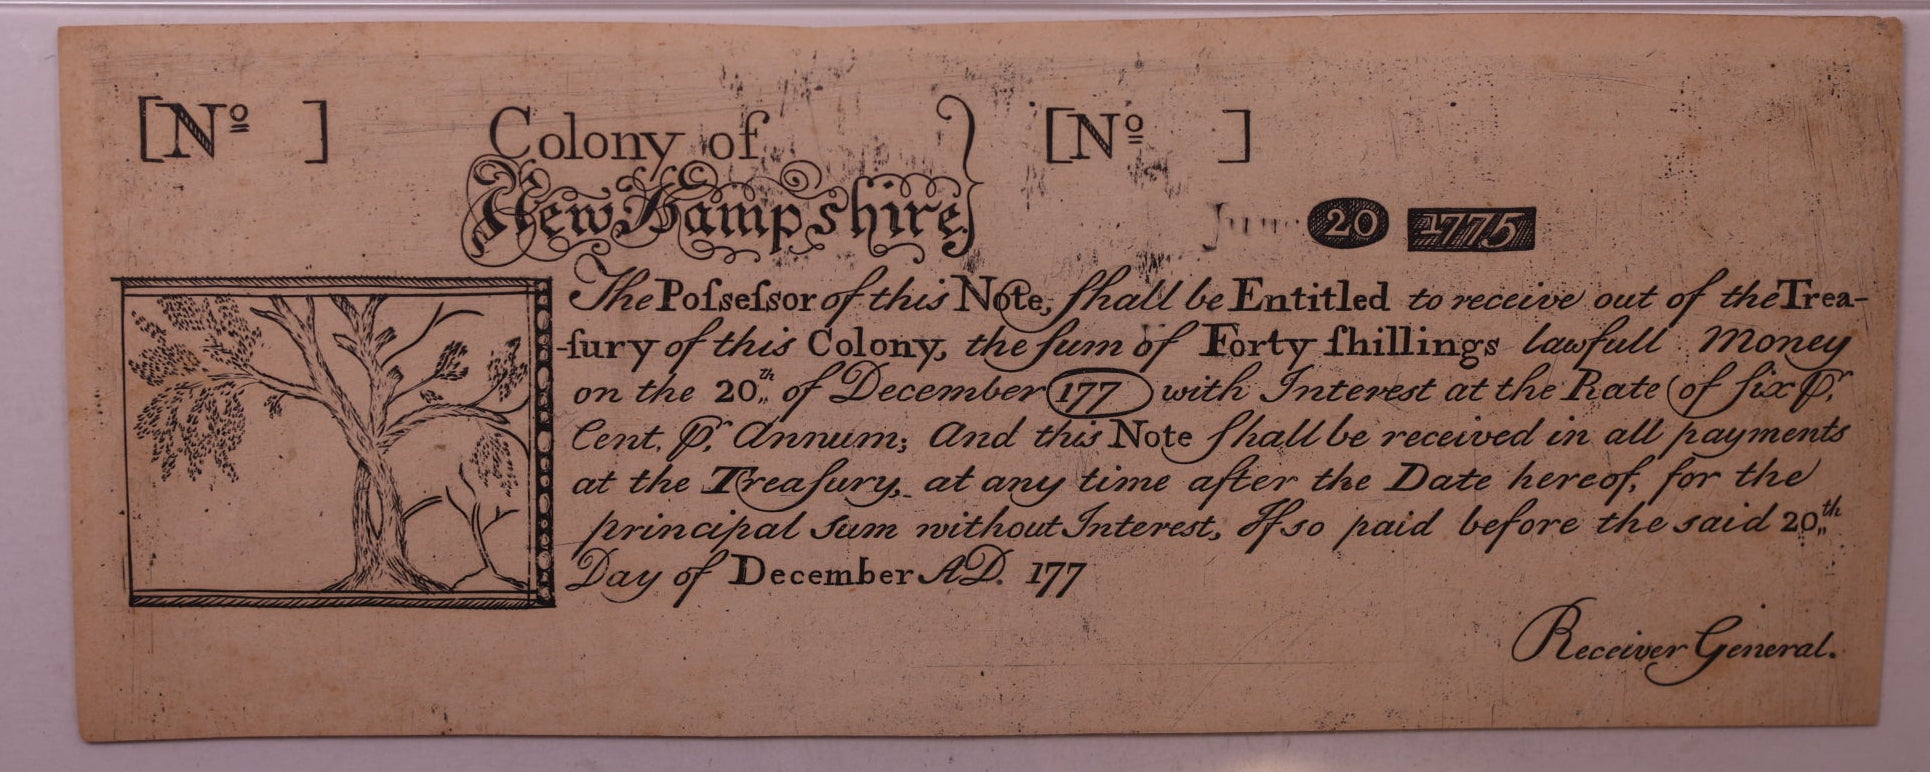 [Nº ] Colony of [Nº ]
New Hampshire}
June 20 1775
The Poſseſsor of this Note, ſhall be Entitled to receive out of the Trea-
-ſury of this Colony, the ſum of Forty ſhillings lawfull Money
on the 20,,th of December 177 with Interest at the Rate of ſix Pr.
Cent. Pr. Annum; And this Note ſhall be received in all payments
at the Treaſury, at any time after the Date hereof, for the
principal sum without Interest, If so paid before the said 20,,th
Day of December AD. 177
Receiver General.